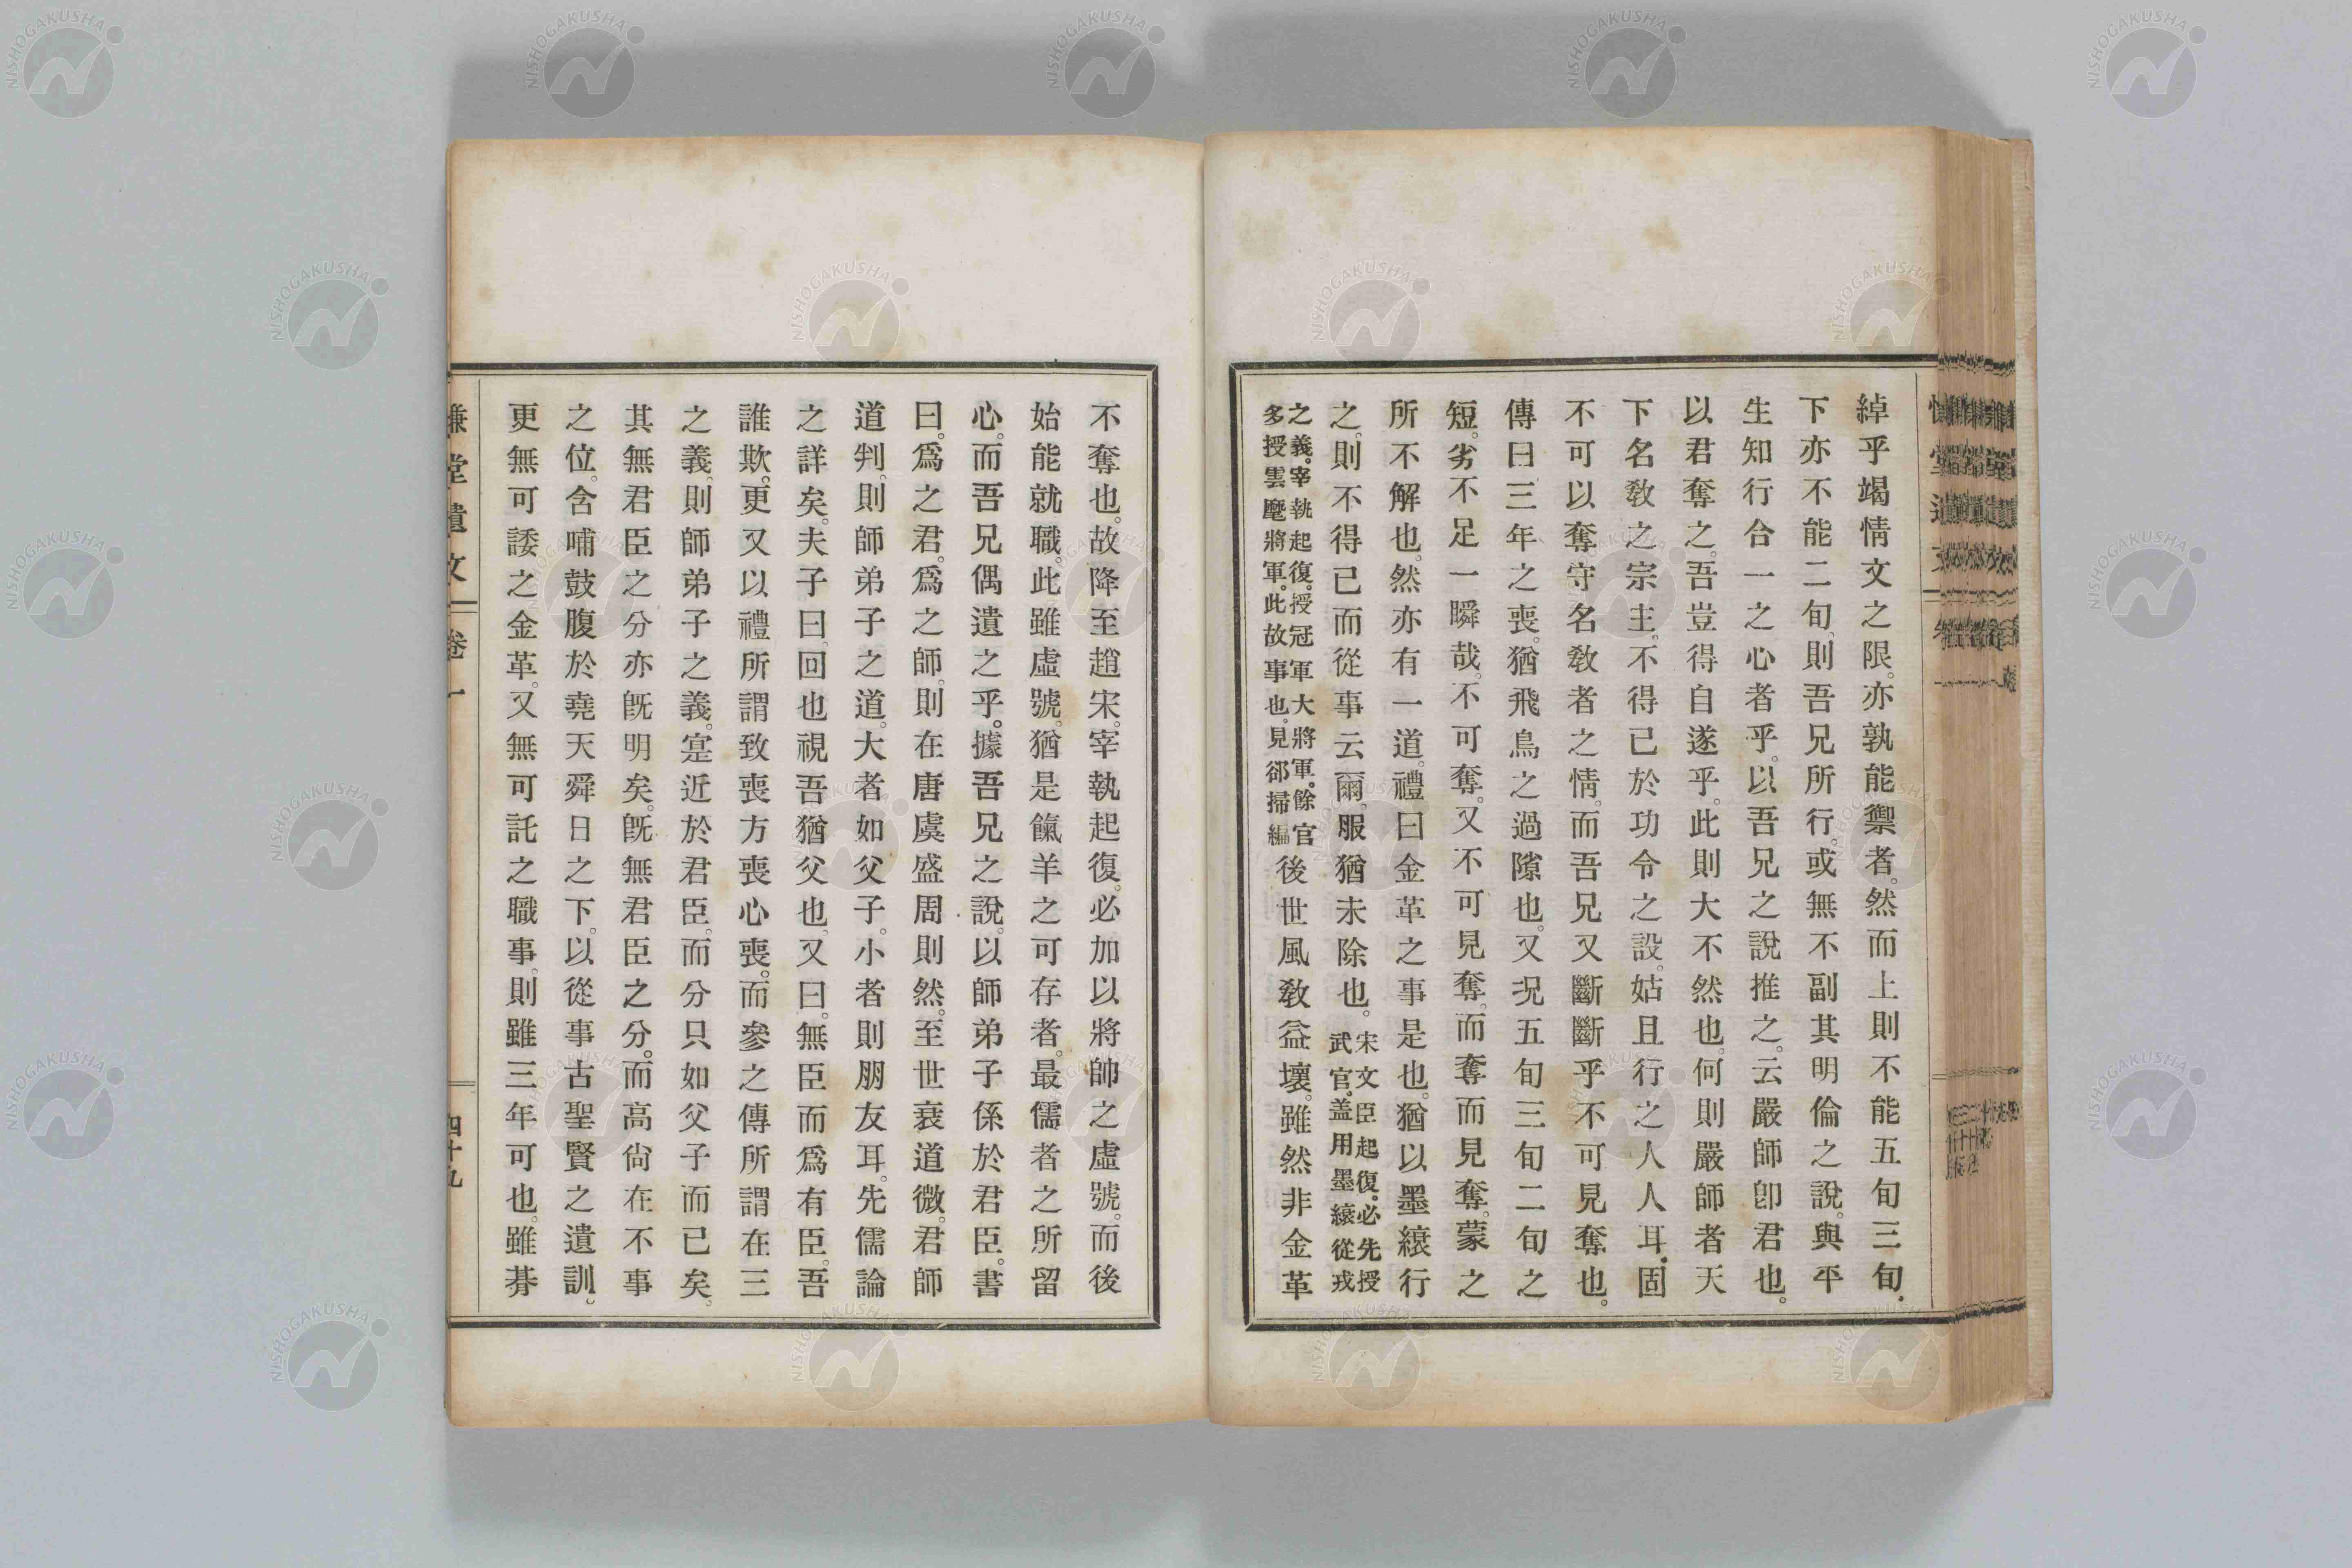 綽乎竭情文之限。亦孰能禦者。然而上則不能五旬三旬。
下亦不能二旬、則吾兄所行。或無不副其明倫之說。與平
生知行合一之心者乎。以吾兄之說推之。云嚴師卽君也。
以君奪之。吾豈得自遂乎。此則大不然也。何則嚴師者天
下名敎之宗主。不得已於功令之設。姑且行之人人耳。固
不可以奪守名敎者之情。而吾兄又斷斷乎不可見奪也。
傳曰三年之喪。猶飛鳥之過隙也。又況五旬三旬二旬之
短。劣不足一瞬哉。不可奪。又不可見奪。而奪而見奪。蒙之
所不解也。然亦有一道。禮曰金革之事是也。猶以墨縗行
之。則不得已而從事云爾。服猶未除也。宋文臣起復。必先授武官。盖用墨縗從戎
之義。宰執起復。授冠軍大將軍。餘官多授雲麾將軍。此故事也。見郤掃編後世風敎益壞。雖然非金革
不奪也。故降至趙宋。宰執起復。必加以將帥之虛號。而後
始能就職。此雖虛號。猶是餼羊之可存者。最儒者之所留
心。而吾兄偶遺之乎。據吾兄之說。以師弟子係於君臣。書
曰。爲之君。爲之師。則在唐虞盛周則然。至世衰道微。君師
道判。則師弟子之道。大者如父子。小者則朋友耳。先儒論
之詳矣。夫子曰。回也視吾猶父也。又曰。無臣而爲有臣。吾
誰欺。更又以禮所謂致喪方喪心喪。而參之傳所謂在三
之義。則師弟子之義。寔近於君臣。而分只如父子而已矣。
其無君臣之分亦旣明矣。旣無君臣之分。而高尙在不事
之位。含哺鼓腹於堯天舜日之下。以從事古聖賢之遺訓。
更無可諉之金革。又無可託之職事。則雖三年可也。雖朞
慊堂遺文
卷一
四十九